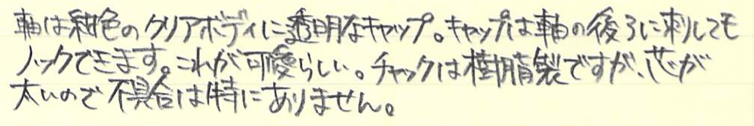 軸は紺色のクリアボディに透明なキャップ。キャップは軸の後ろに刺しても
ノックできます。これが可愛らしい。チャックは樹脂製ですが、芯が
太いので不具合は特にありません。